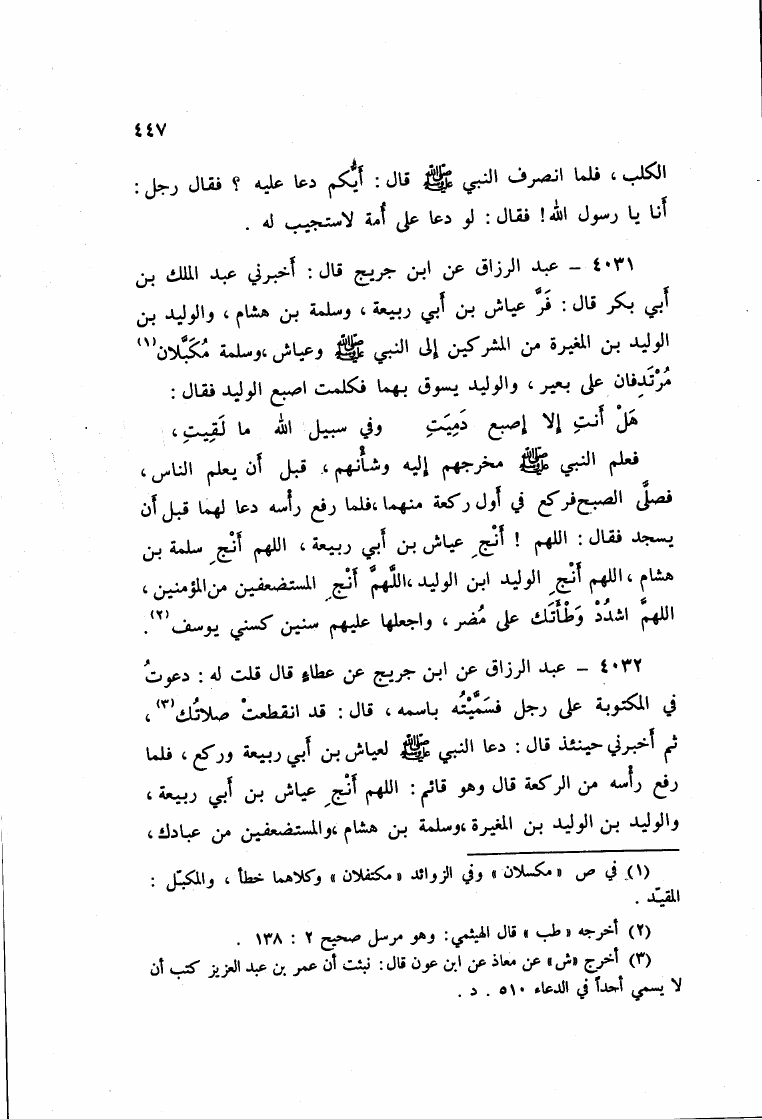 ٤٤٧
الكلب ، فلما انصرف النبي ﷺ قال : أيُّكم دعا عليه ؟ فقال رجل :
أنا يا رسول الله ! فقال : لو دعا على أُمة لاستجيب له .
٤٠٣١ – عبد الرزاق عن ابن جريج قال : أخبرني عبد الملك بن
أبي بكر قال : فَرَّ عياش بن أبي ربيعة ، وسلمة بن هشام ، والوليد بن
الوليد بن المغيرة من المشركين إلى النبي ﷺ وعياش ،وسلمة مُكَبَّلان(١)
مُرْتَدِفان على بعير ، والوليد يسوق بهما فكلمت اصبع الوليد فقال :
هَلْ أَنتِ إلا إصبع دَمِيَتِ وفي سبيل الله ما لَقِيتِ ،
فعلم النبي ﷺ مخرجهم إليه وشأْنهم ، قبل أن يعلم الناس ،
فصلَّى الصبح فركع في أول ركعة منهما ،فلما رفع رأسه دعا لهما قبل أن
يسجد فقال : اللهم ! أَنْجِ عياش بن أبي ربيعة ، اللهم أَنْجِ سلمة بن
هشام ، اللهم أَنْجِ الوليد ابن الوليد ،اللَّهمَّ أَنْجِ المستضعفين من المؤمنين ،
اللهمَّ اشدُدْ وَطْأَتَك على مُضر ، واجعلها عليهم سنين كسني يوسف(٢) .
٤٠٣٢ – عبد الرزاق عن ابن جريج عن عطاءٍ قال قلت له : دعوتُ
في المكتوبة على رجل فسَمَّيْتُه باسمه ، قال : قد انقطعتْ صلاتُك(٣) ،
ثم أخبرني حينئذ قال : دعا النبي ﷺ لعياش بن أبي ربيعة وركع ، فلما
رفع رأسه من الركعة قال وهو قائم : اللهم أَنْجِ عياش بن أبي ربيعة ،
والوليد بن الوليد بن المغيرة ،وسلمة بن هشام ،والمستضعفين من عبادك ،
(١) في ص « مكسلان » وفي الزوائد « مكتفلان » وكلاهما خطأ ، والمكبّل :
المقيّد .
(٢) أخرجه « طب » قال الهيثمي : وهو مرسل صحيح ٢ : ١٣٨ .
(٣) أخرج «ش» عن معاذ عن ابن عون قال : نبئت أن عمر بن عبد العزيز كتب أن
لا يسمي أحداً في الدعاء ٥١٠ . د .